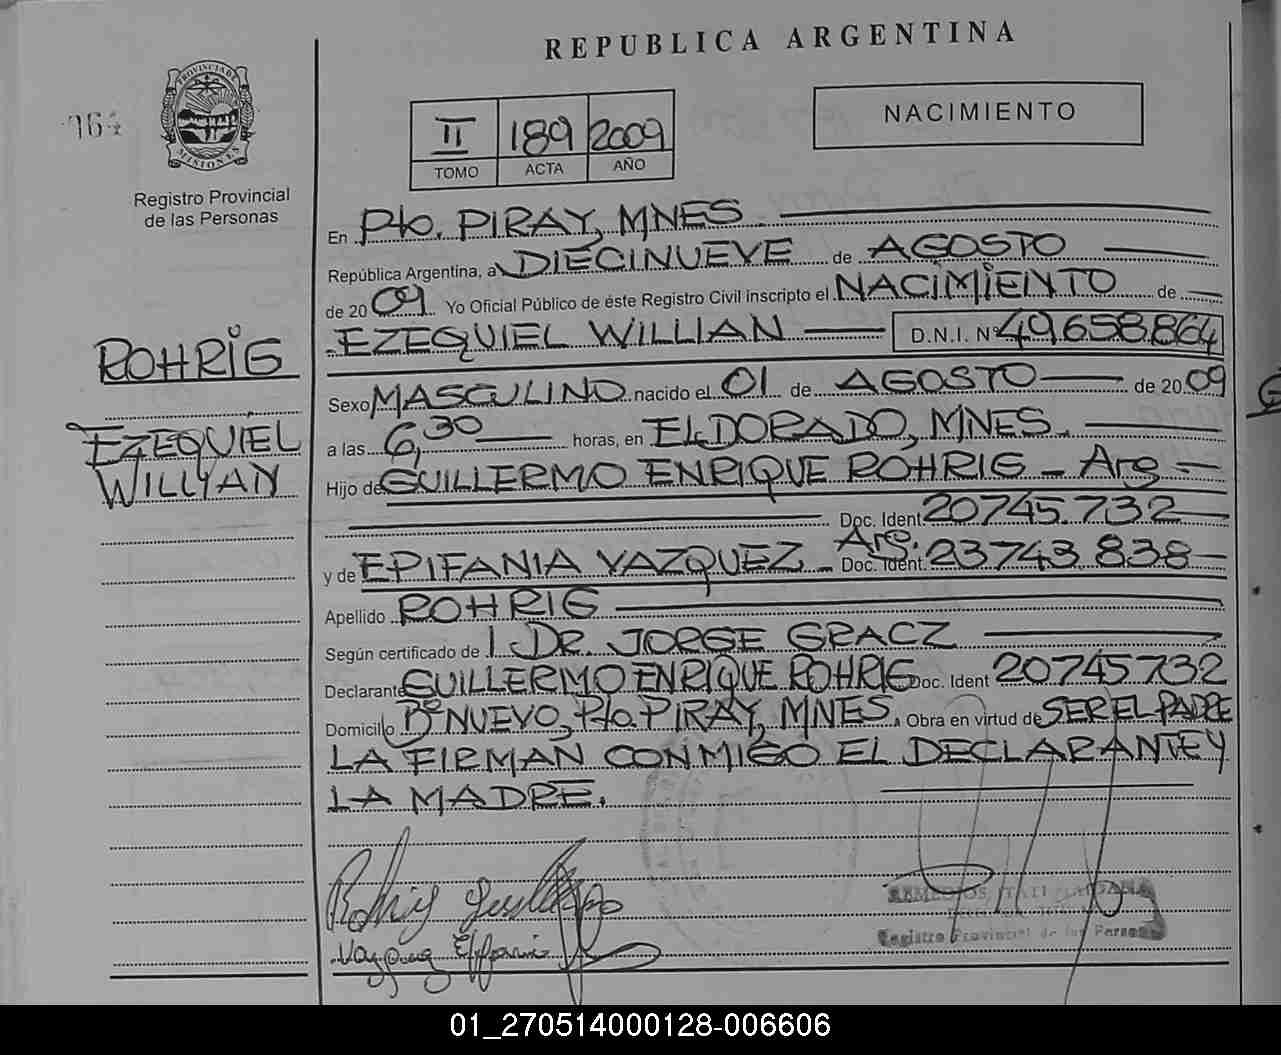 REPUBLICA ARGENTINA
PROVINCIA DE
MISIONES
Registro Provincial
de las Personas
II 189 2009
TOMO ACTA AÑO
NACIMIENTO
En Pto. PIRAY, MNES
República Argentina, a DIECINUEVE de AGOSTO
de 2009 Yo Oficial Público de éste Registro Civil inscripto el NACIMIENTO de
EZEQUIEL WILLIAN D.N.I. Nº 49.658.864
ROHRIG
EZEQUIEL
WILLYAN
Sexo MASCULINO nacido el 01 de AGOSTO de 2009
a las 6,30 horas, en ELDORADO, MNES.
Hijo de GUILLERMO ENRIQUE ROHRIG - Arg -
Doc. Ident 20745.732
y de EPIFANIA VAZQUEZ - Arg. Doc. Ident. 23743.838
Apellido ROHRIG
Según certificado de DR. JORGE GRACZ
Declarante GUILLERMO ENRIQUE ROHRIG Doc. Ident 20745732
Domicilio Bº NUEVO, Pto. PIRAY, MNES. Obra en virtud de SER EL PADRE
LA FIRMAN CONMIGO EL DECLARANTE Y
LA MADRE.
Rohrig
Vazquez
REMEDIOS
Registro Provincial de las Personas
01_270514000128-006606